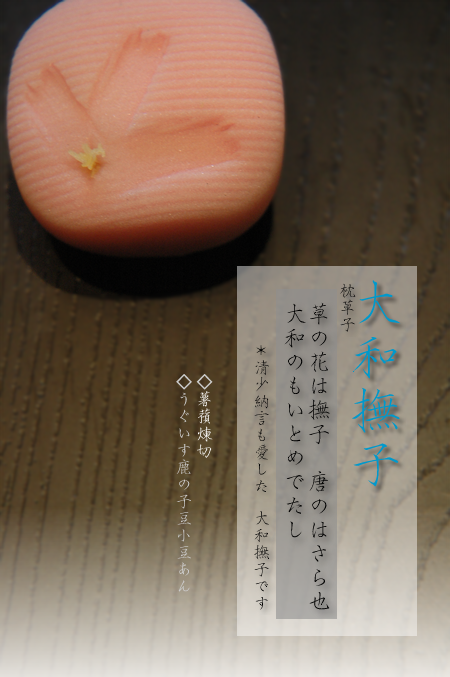 大和撫子
枕草子
草の花は撫子 唐のはさら也
大和のもいとめでたし
*清少納言も愛した 大和撫子です
◇薯蕷煉切
◇うぐいす鹿の子豆小豆あん